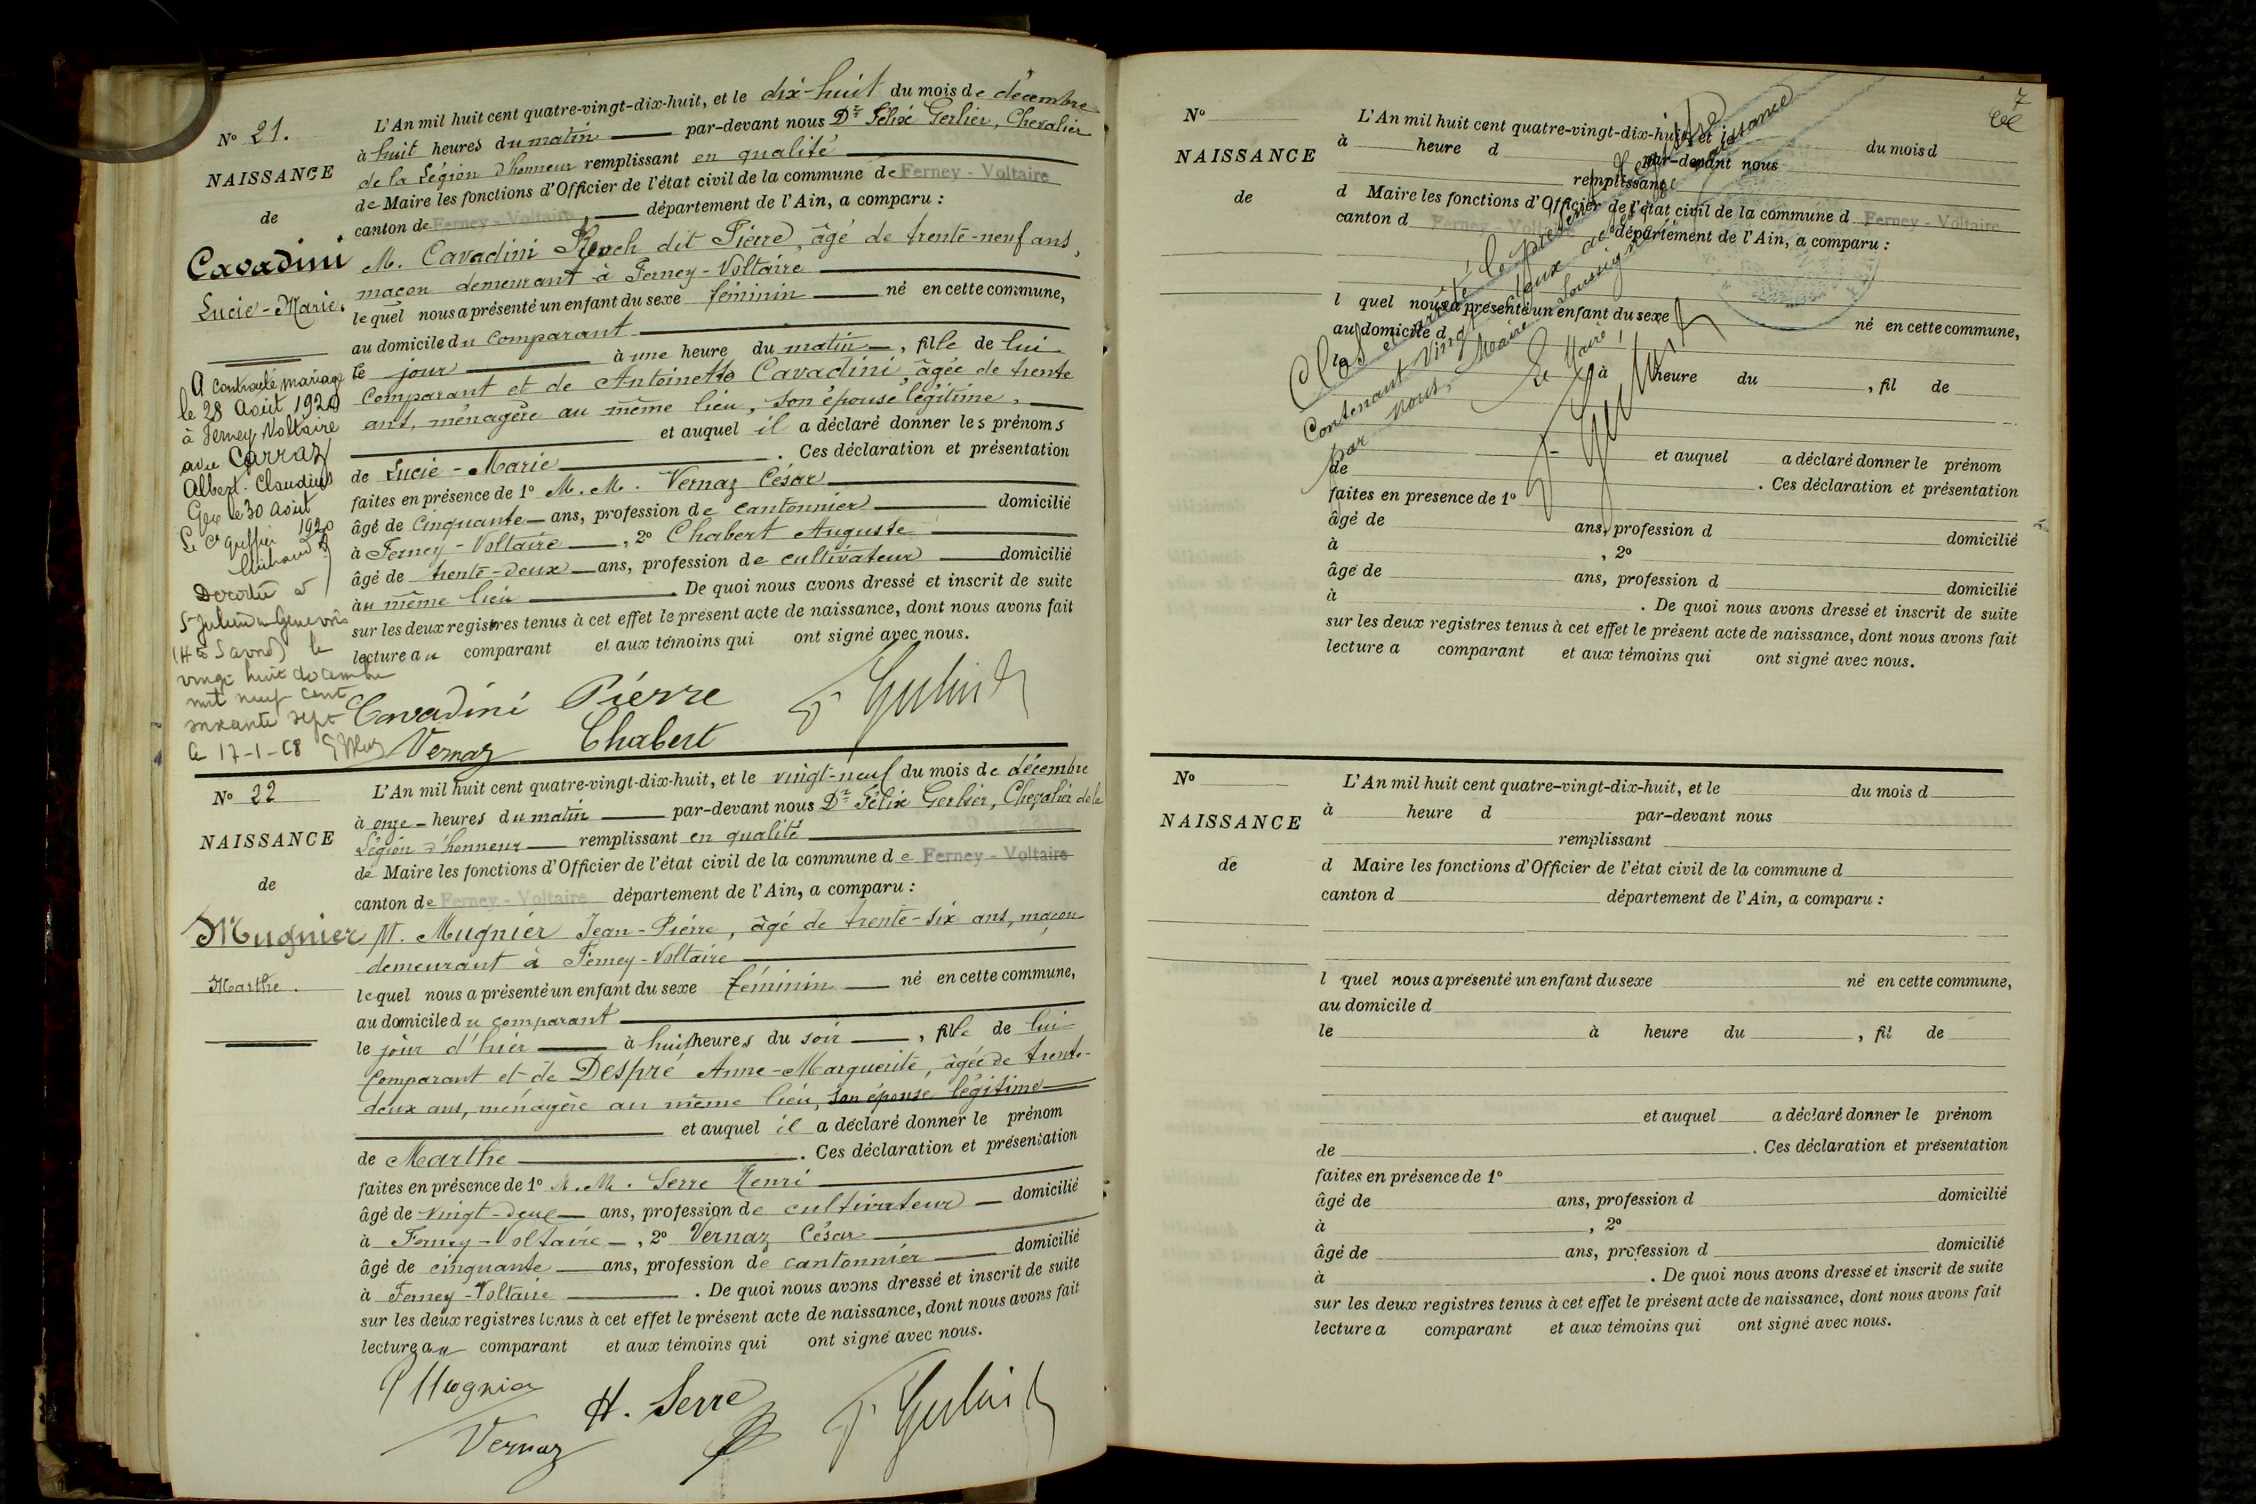 N° 21.
NAISSANCE
de
Cavadini
Lucie-Marie.
A contracté mariage
le 28 Août 1920
à Ferney Voltaire
avec Carraz
Albert-Claudius
Gex le 30 Août
1920
Le Cs Greffier
Décédée à
St Julien en Genevois
(Hte Savoie) le
vingt huit décembre
mil neuf cent
soixante sept
Le 17-1-68
L'An mil huit cent quatre-vingt-dix-huit, et le dix-huit du mois de décembre
à huit heures du matin par-devant nous Dr Félix Gerlier, Chevalier
de la Légion d'honneur remplissant en qualité
de Maire les fonctions d'Officier de l'état civil de la commune de Ferney - Voltaire
canton de Ferney - Voltaire, département de l'Ain, a comparu :
M. Cavadini Roch dit Pierre, âgé de trente-neuf ans,
maçon demeurant à Ferney-Voltaire
lequel nous a présenté un enfant du sexe féminin né en cette commune,
au domicile du comparant
le jour à une heure du matin, fille de lui
comparant et de Antoinette Cavadini âgée de trente
ans, ménagère au même lieu, son épouse légitime,
et auquel il a déclaré donner les prénoms
de Lucie-Marie. Ces déclaration et présentation
faites en présence de 1° M.M. Vernaz César
âgé de cinquante ans, profession de cantonnier domicilié
à Ferney-Voltaire, 2° Chabert Auguste
âgé de trente-deux ans, profession de cultivateur domicilié
au même lieu. De quoi nous avons dressé et inscrit de suite
sur les deux registres tenus à cet effet le présent acte de naissance, dont nous avons fait
lecture au comparant et aux témoins qui ont signé avec nous.
Cavadini Pierre F Gerlier
Vernaz Chabert
N° 22
NAISSANCE
de
Mugnier
Marthe.
L'An mil huit cent quatre-vingt-dix-huit, et le vingt-neuf du mois de décembre
à onze heures du matin par-devant nous Dr Félix Gerlier, Chevalier de la
Légion d'honneur remplissant en qualité
de Maire les fonctions d'Officier de l'état civil de la commune de Ferney - Voltaire
canton de Ferney - Voltaire département de l'Ain, a comparu :
M. Mugnier Jean-Pierre, âgé de trente-six ans, maçon
demeurant à Ferney-Voltaire
lequel nous a présenté un enfant du sexe féminin né en cette commune,
au domicile du comparant
le jour d'hier à huit heures du soir, fille de lui
comparant et de Despré Anne-Marguerite, âgée de trente-
deux ans, ménagère au même lieu, son épouse légitime
et auquel il a déclaré donner le prénom
de Marthe. Ces déclaration et présentation
faites en présence de 1° M.M. Serre Henri
âgé de vingt-deux ans, profession de cultivateur domicilié
à Ferney-Voltaire, 2° Vernaz César
âgé de cinquante ans, profession de cantonnier domicilié
à Ferney-Voltaire. De quoi nous avons dressé et inscrit de suite
sur les deux registres tenus à cet effet le présent acte de naissance, dont nous avons fait
lecture au comparant et aux témoins qui ont signé avec nous.
P Mugnier
H. Serre F Gerlier
Vernaz
7
N°
NAISSANCE
de
L'An mil huit cent quatre-vingt-dix-huit, et le du mois d
à heure d par-devant nous
remplissant
d Maire les fonctions d'Officier de l'état civil de la commune d Ferney - Voltaire
canton d Ferney - Voltaire département de l'Ain, a comparu :
l quel nous a présenté un enfant du sexe né en cette commune,
au domicile d
le à heure du , fil de
et auquel a déclaré donner le prénom
de . Ces déclaration et présentation
faites en présence de 1°
âgé de ans, profession d domicilié
à , 2°
âgé de ans, profession d domicilié
à . De quoi nous avons dressé et inscrit de suite
sur les deux registres tenus à cet effet le présent acte de naissance, dont nous avons fait
lecture a comparant et aux témoins qui ont signé avec nous.
Clos et arrêté le présent registre
contenant vingt deux actes de naissance
par nous, Maire soussigné
Le Maire
F Gerlier
N°
NAISSANCE
de
L'An mil huit cent quatre-vingt-dix-huit, et le du mois d
à heure d par-devant nous
remplissant
d Maire les fonctions d'Officier de l'état civil de la commune d
canton d département de l'Ain, a comparu :
l quel nous a présenté un enfant du sexe né en cette commune,
au domicile d
le à heure du , fil de
et auquel a déclaré donner le prénom
de . Ces déclaration et présentation
faites en présence de 1°
âgé de ans, profession d domicilié
à , 2°
âgé de ans, profession d domicilié
à . De quoi nous avons dressé et inscrit de suite
sur les deux registres tenus à cet effet le présent acte de naissance, dont nous avons fait
lecture a comparant et aux témoins qui ont signé avec nous.